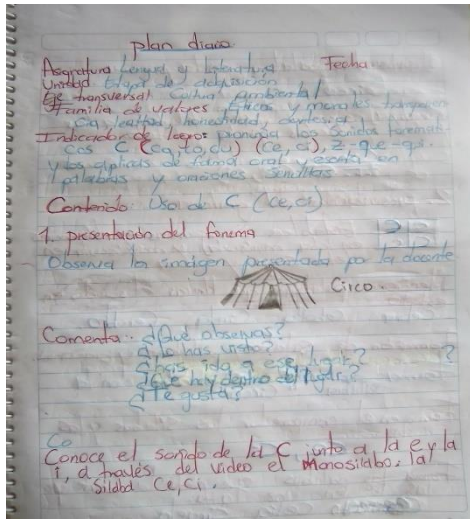 plan diario
Asignatura Lengua y literatura Fecha
Unidad Etapa de adquisición
Eje transversal Cultura ambiental
Familia de valores Éticos y morales
cia, lealtad, honestidad,
Indicador de logro: pronuncia los sonidos
cos C (ca, co, cu) (ce, ci), z-que-qui.
y los aplicas de forma oral y escrita en
palabras y oraciones sencillas
Contenido Uso de C (ce, ci)
1. presentación del fonema
Observa la imagen presentada por la docente
Circo.
Comenta. ¿Qué observas?
¿Lo has visto?
¿has ido a ese lugar? ?
¿Que hay dentro del lugar?
¿Te gusta?
Co
Conoce el sonido de la C junto a la e y la
i, a través del video el Monosilabo: la
silaba Ce, Ci.